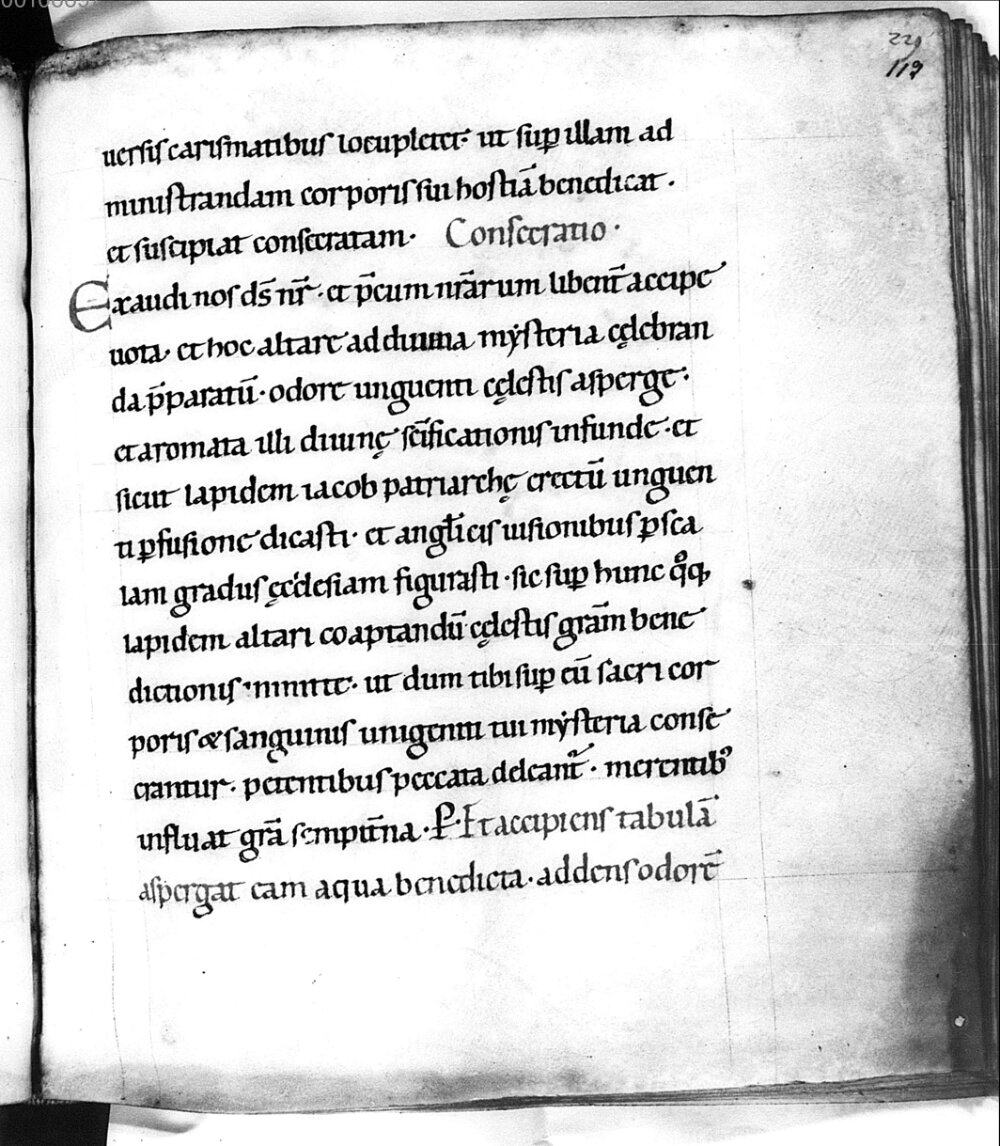 22
119
uersis carismatibus locupletet· ut sup illam ad
ministrandam corporis sui hostiā benedicat·
et suscipiat consecratam· Consecratio·
Exaudi nos ds̄ nr̄· et p̄cum nr̄arum libent̄ accipe
uota· et hoc altare ad diuina mẏsteria cęlebran
da p̄paratū· odore unguenti cęlestis asperge·
et aromata illi diuinę sc̄ificationis infunde· et
sicut lapidem iacob patriarchę erectū unguen
ti ꝑfusione dicasti· et angl̄icis uisionibus ꝑ sca
lam gradus ęcclesiam figurasti· sic sup hunc qͦq,
lapidem altari coaptandū cęlestis gr̄am bene
dictionis inmitte· ut dum tibi sup eū sacri cor
poris & sanguinis unigeniti tui mẏsteria conse
crantur· petentibus peccata deleant̄· merentibꝰ
influat gr̄a sempit̄na· P· Et accipiens tabulā
aspergat eam aqua benedicta· addens odorē